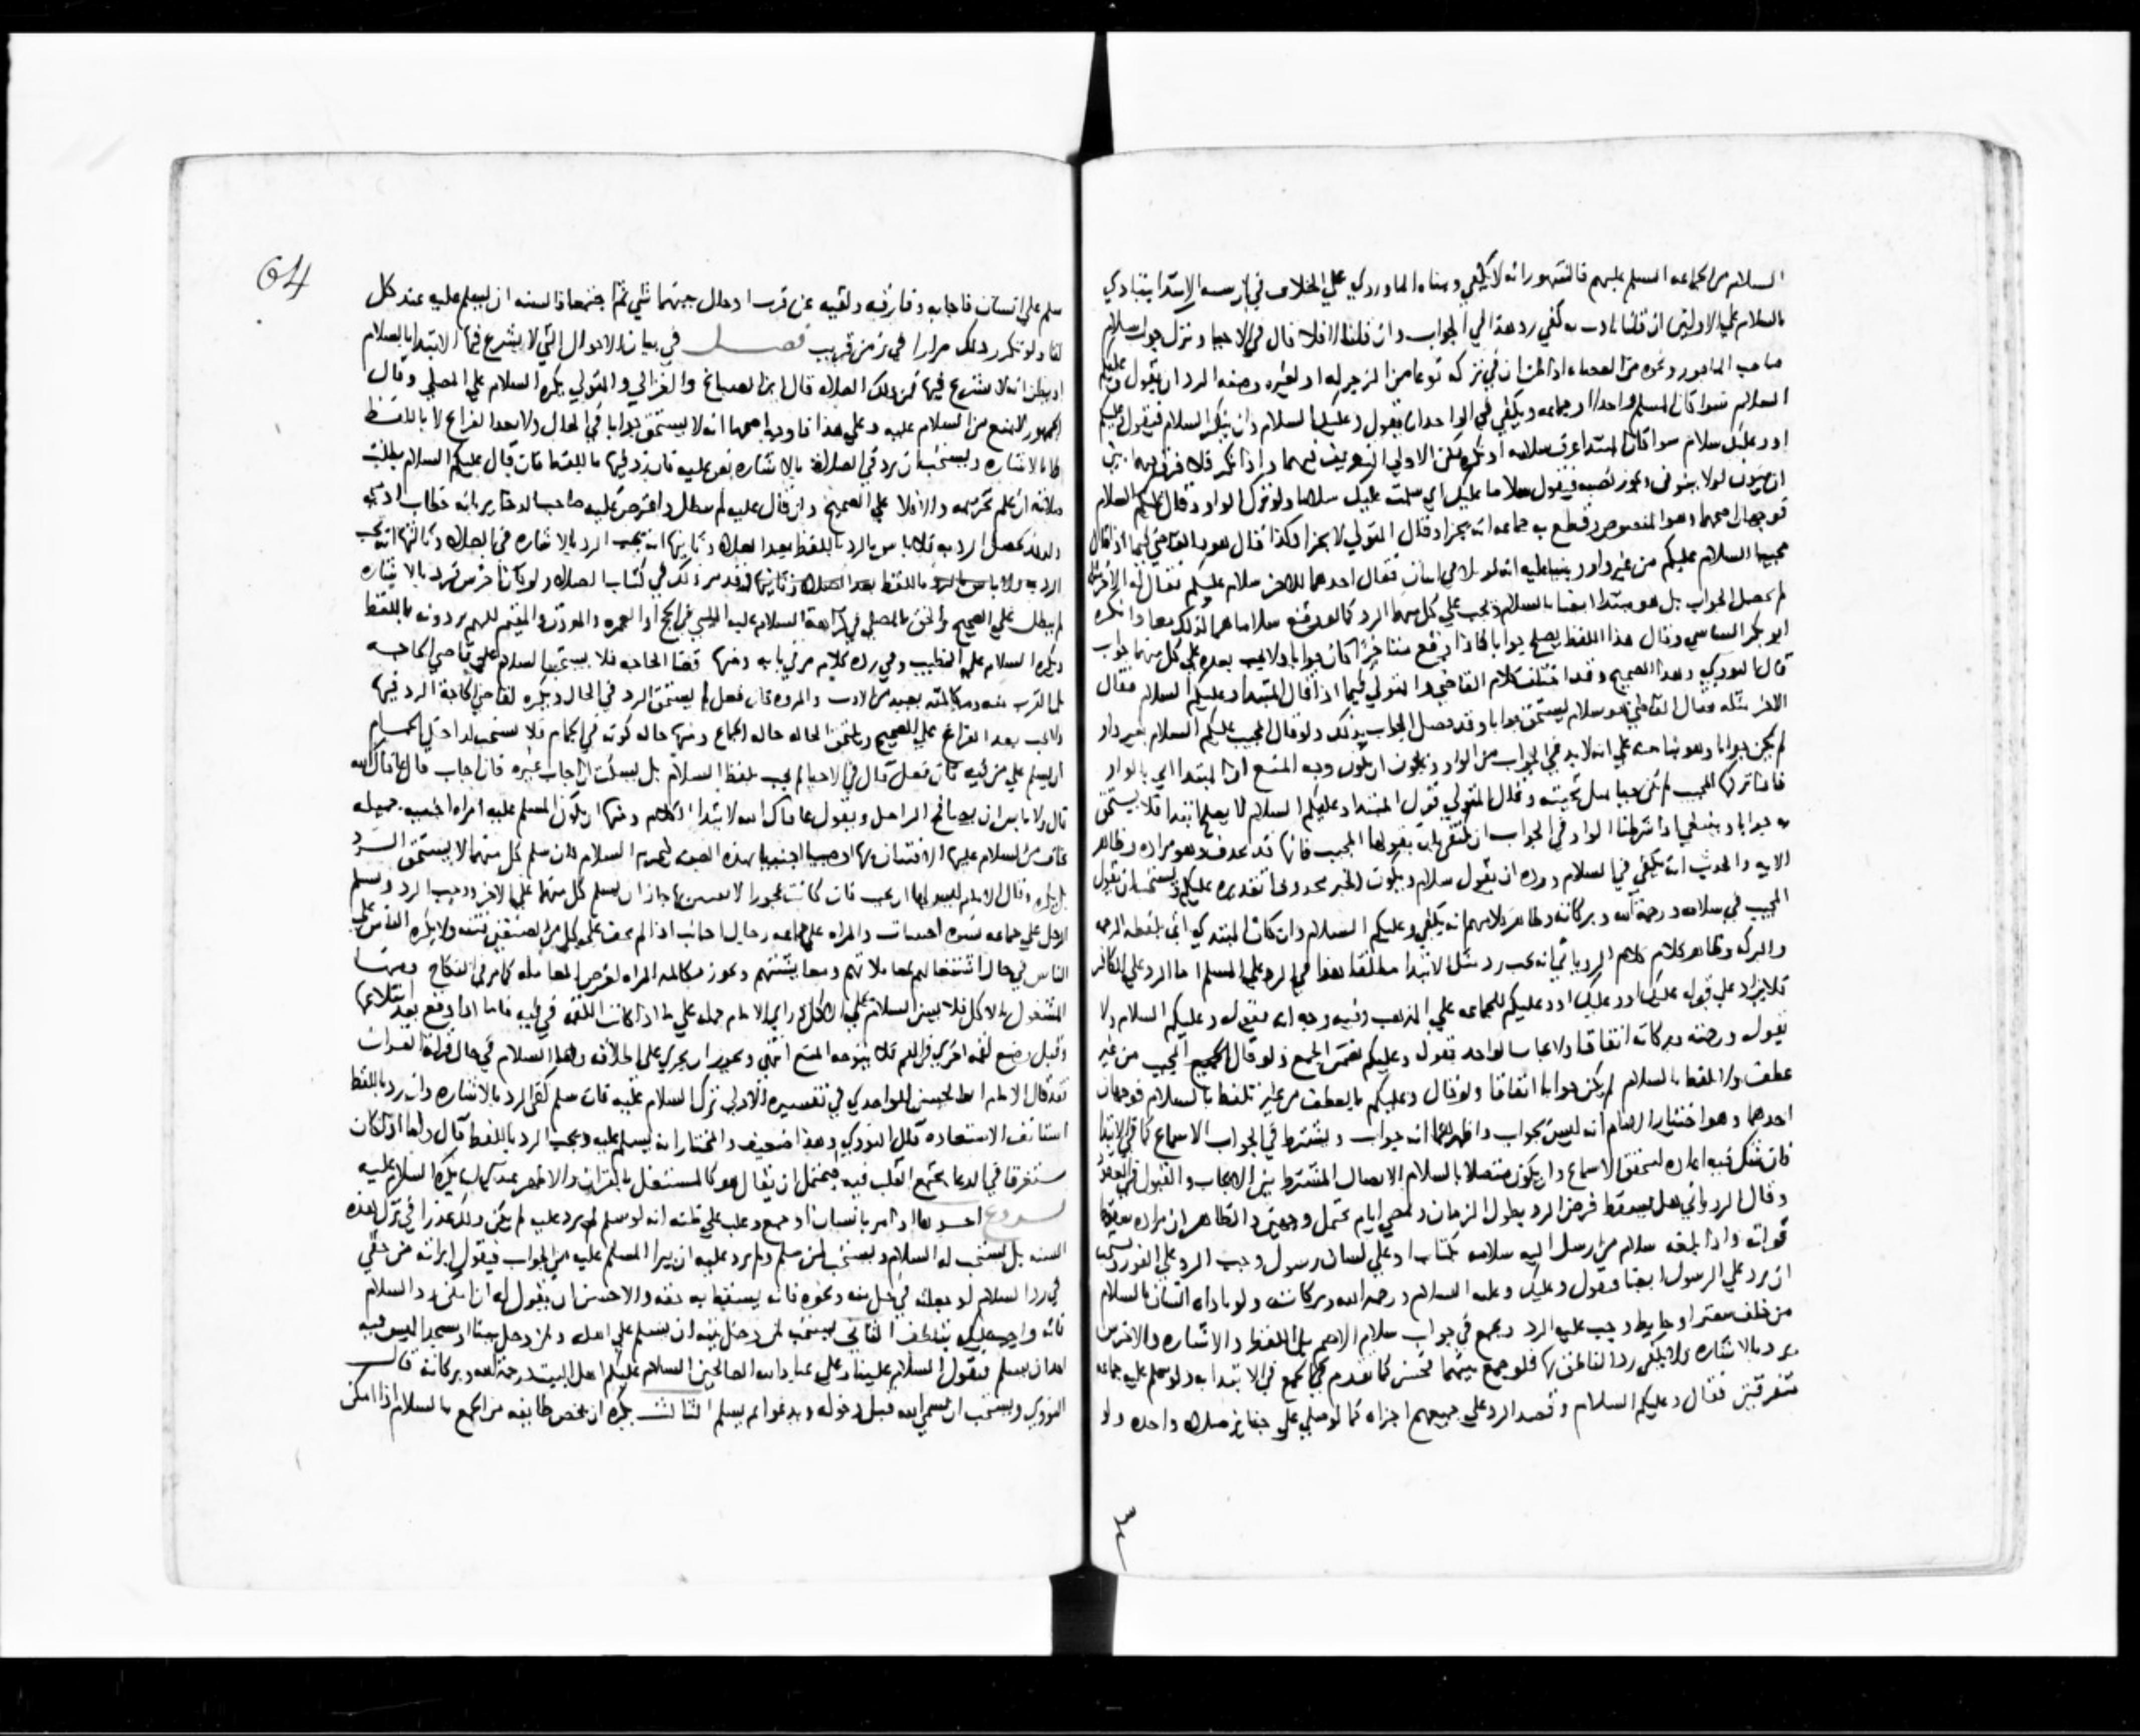 السلام من الجماعه المسلم عليهم فالمشهور انه لا يكفي وبناه الماوردي علي الخلاف في ان سنه الابتدا يتادي
بالسلام علي الاولين ان قلنا تادت به كفي رد هذا في الجواب وان قلنا لا فلا قال في الاحيا وترك جواب سلام
صاحب الماخور ونحوه من العصاه اذا لم ان في تركه نوعا من الزجر له او لغيره وصفه الرد ان يقول وعليكم
السلام سوا كان المسلم واحدا او جماعه ويكفي في الواحد ان يقول وعليك السلام وان ينكر السلام فيقول وعليكم
او وعليك سلام سوا كان المبتدا عرف سلامه او نكره لكن الاولي التعريف فيهما واذا نكر فلا فرق بين
ان ينون لولا ينوفى ويجوز نصبه فيقول سلاما عليك اي سلمت عليك سلاما ولو ترك الواو وقال عليكم السلام
فوجهان اصحهما وهو المنصوص وقطع به جماعه انه يجزا وقال المتولي لا يجزا وكذا قال هو والقاضي فيما اذا قال
مجيبا السلام عليكم من غير واو وينبنا عليه انه لو تلاقي اسانان فقال احدهما للاخر سلام عليكم فقال له الاخر مثله
لم يحصل الجواب بل هو مبتدا ايضا بالسلام فيجب علي كل منهما الرد كما لو وقع سلاماهما كذلك معا وانكره
ابو بكر الشاسي وقال هذا اللفظ يصلح جوابا فاذا وقع متاخرا كان جوابا ولا يجب بعده علي كل منهما جواب
قال النوري وهذا الصحيح وقد اختلف كلام القاضي والمتولي فيما اذا قال المبتدا وعليكم السلام فقال
الاخر مثله فقال القاضي هو سلام يستحق جوابا وقد حصل الجواب بذلك ولو قال المجيب عليكم السلام بغير واو
لم يكن جوابا وهو بناه علي انه لا بد في الجواب من الواو ويجوز ان يكون وجه المنع ان المبتدا اتي بالواو
فاذا تركها المجيب لم يكن مجيبا مثل تحيته وقال المتولي قول المبتدا وعليكم السلام لا يصلح ابتدا فلا يستحق
به جوابا وينبغي اذا شرطنا الواو في الجواب ان يكتفي بان يقولها المجيب فانها قد تحذف وهو مراده وظاهر
الايه والحديث انه يكفي في السلام ورده ان يقول سلام ويكون الخبر محذوفا تقديره عليكم ويستحب ان يقول
المجيب في سلامه ورحمة الله وبركاته وظاهر كلامهم انه يكفي وعليكم السلام وان كان المبتدي اتى بلفظ الرحمه
والبركه وظاهر كلام الروياني انه يجب رد مثل الابتدا مطلقا هذا في الرد علي المسلم اما الرد علي الكافر
فلا يزاد علي قوله عليك او وعليك او وعليكم للجماعه علي المذهب وفيه وجه انه يقول وعليكم السلام ولا
يقول ورحمة وبركاته اتفاقا ولا يجاب الواحد بقول وعليكم بضمير الجمع ولو قال المجيب من غير
عطف ولا لفظ بالسلام لم يكن جوابا اتفاقا ولو قال وعليكم بالعطف من غير تلفظ بالسلام فوجهان
احدهما وهو اختيار الامام انه ليس بجواب واظهرهما انه جواب ويشترط في الجواب الاسماع كما في الابتدا
فان شك فيه اعاده لتحقق الاسماع وان يكون متصلا بالسلام الاتصال المشترط بين الايجاب والقبول في العقود
وقال الروياني هل يسقط فرض الرد بطول الزمان ومضي ايام يحتمل وجهين والظاهر ان مراده سقوط
فواته واذا بلغه سلام من رسل اليه سلامه بكتاب او علي لسان رسول وجب الرد علي الفور ويستحب
ان يرد علي الرسول ايضا فيقول وعليك وعليه السلام ورحمة الله وبركاته ولو ناداه انسان بالسلام
من خلف ستر او حايط وجب عليه الرد ويجمع في جواب سلام الاصم بين اللفظ والاشاره والاخرس
يرد بالاشاره ولا يكفي رد الناطق بها فلو جمع بينهما فحسن كما تقدم كما يجمع في الابتدا به ولو سلم عليه جماعه
متفرقين فقال وعليكم السلام وقصد الرد علي جميعهم اجزاه كما لو صلي علي جنايز صلاه واحده ولو
سلم
64
سلم علي انسان فاجابه وفارقه ولقيه عن قرب او حال بينهما شي ثم اجتمعا فالسنه ان يسلم عليه عند كل
لقا ولو تكرر ذلك مرارا في زمن قريب فصل في بيان الاحوال التي لا يشرع فيها الابتدا بالسلام
او يظن انه لا يشرع فيها فمن ذلك الصلاه قال ابن الصباغ والغزالي والمتولي يكره السلام علي المصلي وقال
الجمهور لا يمنع من السلام عليه وعلي هذا فاوجه اصحها انه لا يستحق جوابا في الحال ولا بعد الفراغ لا باللفظ
ولا بالاشاره ويستحب ان يرد في الصلاه بالاشاره نص عليه فان رد فيها باللفظ فان قال عليكم السلام بطلت
صلاته ان علم تحريمه والا فلا علي الصحيح وان قال عليه لم تبطل واعترض عليه صاحب الدخاير بانه خطاب ادمي
ولانه يحصل الرد به فلا باس بالرد باللفظ بعد الصلاه وثانيها انه يجب الرد بالاشاره في الصلاه وثالثها انه يجب
الرد باللفظ بعد الصلاه وقد مر ذلك في كتاب الصلاه ولو كان اخرس فرد بالاشاره
لم يبطل علي الصحيح والحق بالمصلي في كراهة السلام عليه الملبي في الحج او العمره والمؤذن والمقيم لكنهم يردونه باللفظ
ويكره السلام علي الخطيب وفي رده كلام مر في بابه ومنها قضا الحاجه فلا يستحب السلام علي قاضي الحاجه
لان القرب منه ومكالمته بعيد من الادب والمروه فان فعل لم يستحق الرد في الحال ويكره لقاضي الحاجة الرد فيها
ولا يجب بعد الفراغ علي الصحيح ويلتحق بحاله حاله الجماع ومنها حاله كونه في الحمام فلا يستحب لداخل الحمام
ان يسلم علي من فيه فان فعل قال في الاحيا لم يجب بلفظ السلام بل يسكت ان اجاب غيره فان اجاب قال عافاك الله
قال ولا باس ان يصافح الداخل ويقول عافاك الله لابتدا الكلام ومنها ان يكون المسلم عليه امراه اجنبيه جميله
يخاف من السلام عليها الافتتان بها او صبيا اجنبيا بهذه الصفه فيحرم السلام فان سلم كل منهما لا يستحق الرد
بل يكره وقال الامام فان كانت عجوزا لا يفتتن بها جاز ان يسلم كل منهما علي الاخر ووجب الرد ويسلم
الرجل علي جماعه نسوه اجنبيات والمراه علي جماعه رجال اجانب اذا لم يخف علي كل من الصنفين فتنه ولا يكره السلام علي
الناس في حال اشتغالهم بمعاملاتهم ومعايشتهم ويجوز مكالمه المراه لغرض المعامله كما مر في النكاح ومنها
المشغول بالاكل فلا يسن السلام علي الاكل وراي الامام حمله علي ما اذا كانت اللقمه في فيه فاما اذا وقع بعد ابتلاعها
وقبل وضع لقمه اخري في الفم فلا يتوجه المنع انتهى ويجوز ان يجري علي اطلاقه واما السلام في حال قراة القران
فقد قال الامام ابو الحسن الواحدي في تفسيره الاولي ترك السلام عليه فان سلم كفى الرد بالاشاره وان رد باللفظ
استانف الاستعاذه قال النوري وهذا ضعيف والمختار انه يسلم عليه ويجب الرد باللفظ قال واما اذا كان
مستغرقا في الدعا مجتمع القلب فيه فيحتمل ان يقال هو كالمشتغل بالقران والاظهر عندي انه يكره السلام عليه
فروع احدها اذا مر بانسان او جمع وغلب علي ظنه انه لو سلم لم يرد عليه لم يكن ذلك عذرا في ترك هذه
السنه بل يستحب له السلام ويستحب لمن سلم ولم يرد عليه ان يبرا المسلم عليه من الجواب فيقول ابراته من حقي
في رد السلام او جعلته في حل منه ونحوه فانه يسقط به حقه والاحسن ان يقول له ان امكن رد السلام
فانه واجب عليك بتلطف الثاني يستحب لمن دخل بيته ان يسلم علي اهله ولمن دخل بيتا او مسجدا ليس فيه
احد ان يسلم فيقول السلام علينا وعلي عباد الله الصالحين السلام عليكم اهل البيت ورحمة الله وبركاته قال
النووي ويستحب ان يسمي الله قبل دخوله ويدعوا ثم يسلم الثالث يكره ان يخص طايفه من الجمع بالسلام اذا امكن